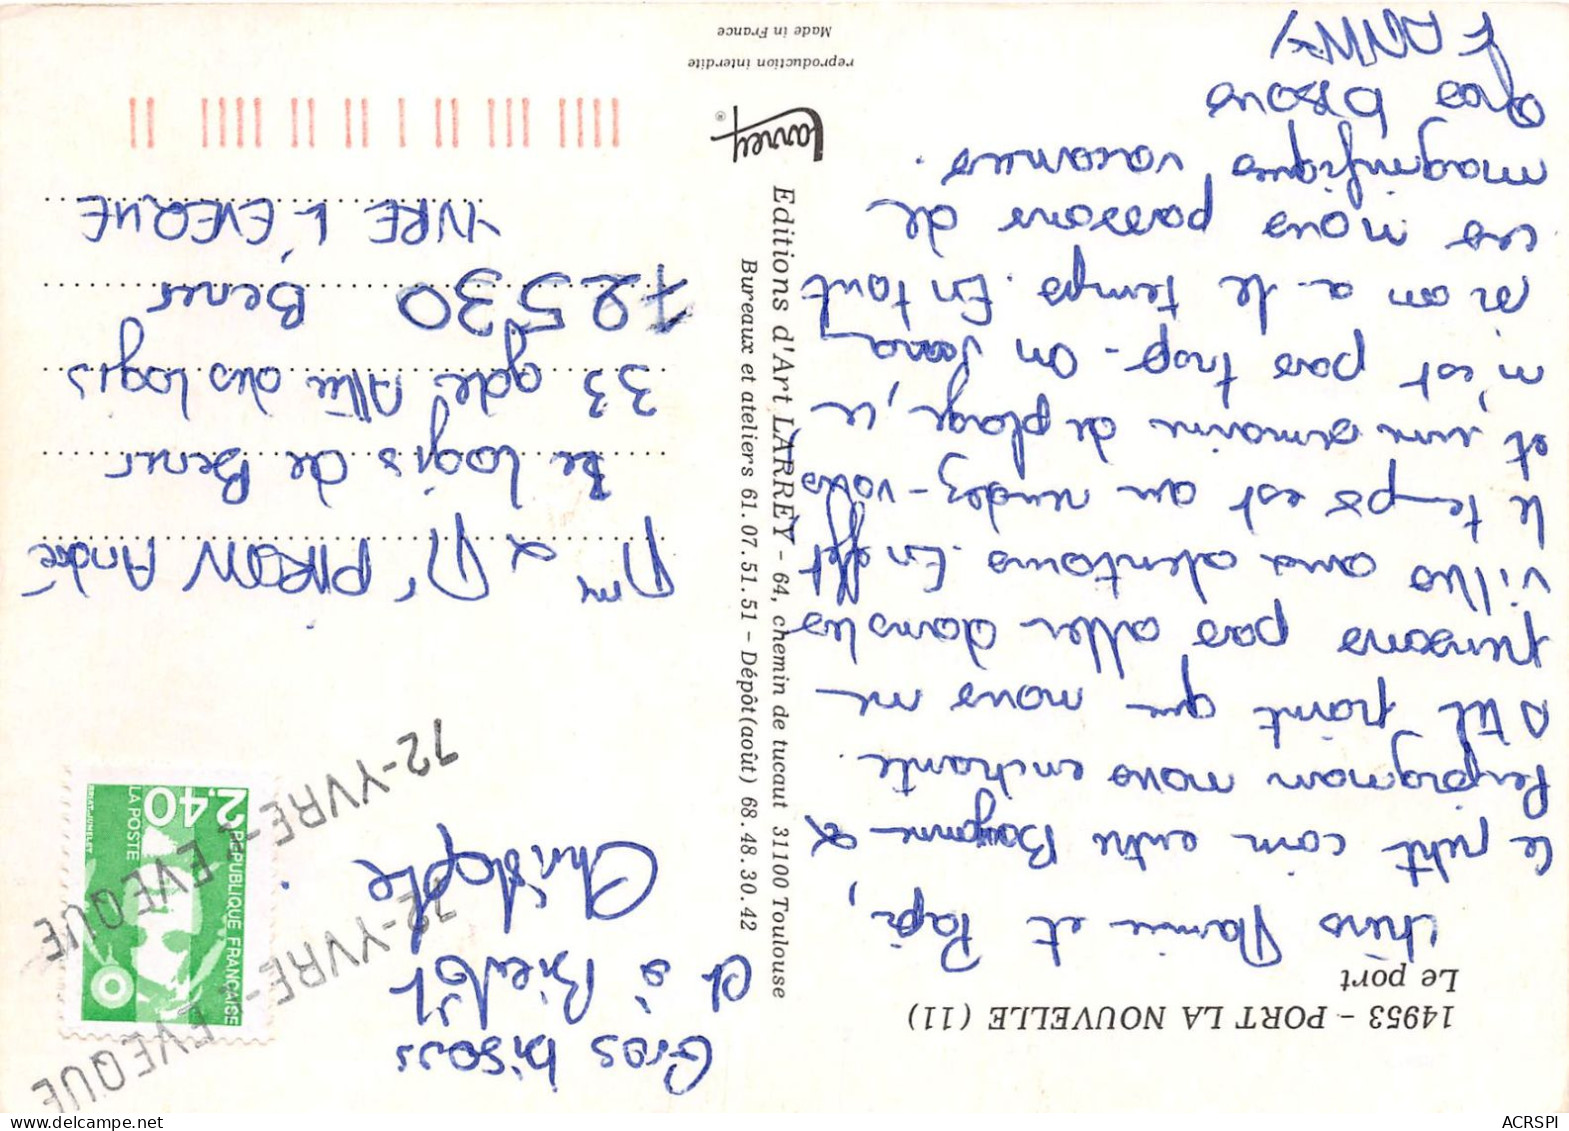 14953 - PORT LA NOUVELLE (11)
Le port
Chers Mamie et Papi,
Ce petit coin entre Bayonne &
Perpignan nous enchante.
A tel point que nous ne
pensons pas aller dans les
villes aux alentours. En effet
le temps est au rendez-vous
et une semaine de plage, ce
n'est pas trop. On sera
si on a le temps. En tout
cas nous passons de
magnifiques vacances.
Gros bisous
FANNY
Gros bisous
et à Bientôt
Christophe
Editions d'Art LARREY - 64, chemin de tucaut 31100 Toulouse
Bureaux et ateliers 61.07.51.51 - Dépôt (août) 68.48.30.42
Larrey ®
reproduction interdite
Made in France
2,40
RÉPUBLIQUE FRANÇAISE
LA POSTE
BRIAT-JUMELET
72-YVRE-L'EVEQUE
72-YVRE-L'EVEQUE
Mme & Mr PIRON André
Le Logis de Bener
33 gde Allée des Logis
72530 Bener
YVRE L'EVEQUE
ACRSPI